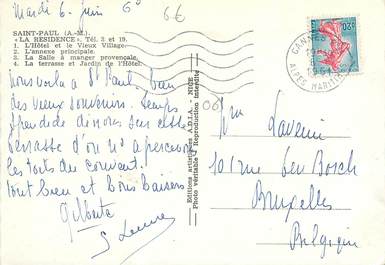 Mardi 6 Juin 6°
6€
SAINT-PAUL (A.-M.).
« LA RESIDENCE », Tél. 3 et 19.
1. L'Hôtel et le Vieux Village.
2. L'annexe principale.
3. La Salle à manger provençale.
4. La terrasse et Jardin de l'Hôtel.
Nous voilà à St Paul,
des vieux souvenirs. Temps
splendide dinons sur cette
terrasse d'où on aperçoit
les toits du couvent!
tout bien et Bons baisers
Gilberte
Editions artistiques A.D.I.A. - NICE
Photo véritable - Reproduction interdite
0,20
1961
ALPES MARITIMES
06
101 rue
Bruxelles
Belgique